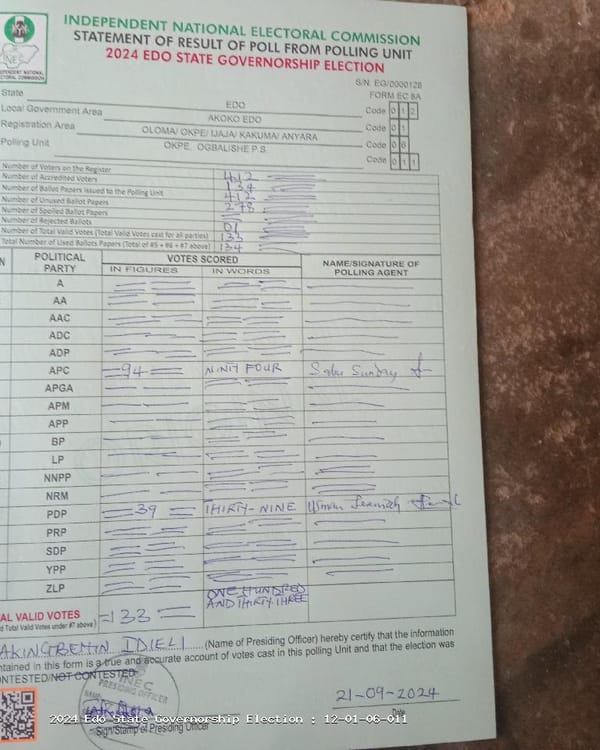 INDEPENDENT NATIONAL ELECTORAL COMMISSION
STATEMENT OF RESULT OF POLL FROM POLLING UNIT
2024 EDO STATE GOVERNORSHIP ELECTION
S/N. EG/0000128
FORM EC 8A
State EDO Code 0 1 2
Local Government Area AKOKO EDO Code 0 1
Registration Area OLOMA/ OKPE/ IJAJA/ KAKUMA/ ANYARA Code 0 6
Polling Unit OKPE, OGBALISHE P.S. Code 0 1 1
Number of Voters on the Register 412
Number of Accredited Voters 134
Number of Ballot Papers Issued to the Polling Unit 412
Number of Unused Ballot Papers 278
Number of Spoiled Ballot Papers
Number of Rejected Ballots 01
Number of Total Valid Votes (Total Valid Votes cast for all parties) 133
Total Number of Used Ballots Papers (Total of #5 + #6 + #7 above) 134
POLITICAL PARTY VOTES SCORED NAME/SIGNATURE OF POLLING AGENT
IN FIGURES IN WORDS
A
AA
AAC
ADC
ADP
APC =94= NINTY FOUR Sabu Sunday
APGA
APM
APP
BP
LP
NNPP
NRM
PDP =39= THIRTY-NINE Usman
PRP
SDP
YPP
ZLP
AL VALID VOTES =133= ONE HUNDRED AND THIRTY THREE
Total Valid Votes under #7 above)
(Name of Presiding Officer) hereby certify that the information
ntained in this form is a true and accurate account of votes cast in this polling Unit and that the election was
ONTESTED/NOT CONTESTED
INEC
PRESIDING OFFICER
21-09-2024
Date
2024 Edo State Governorship Election : 12-01-06-011
Sign/Stamp of Presiding Officer